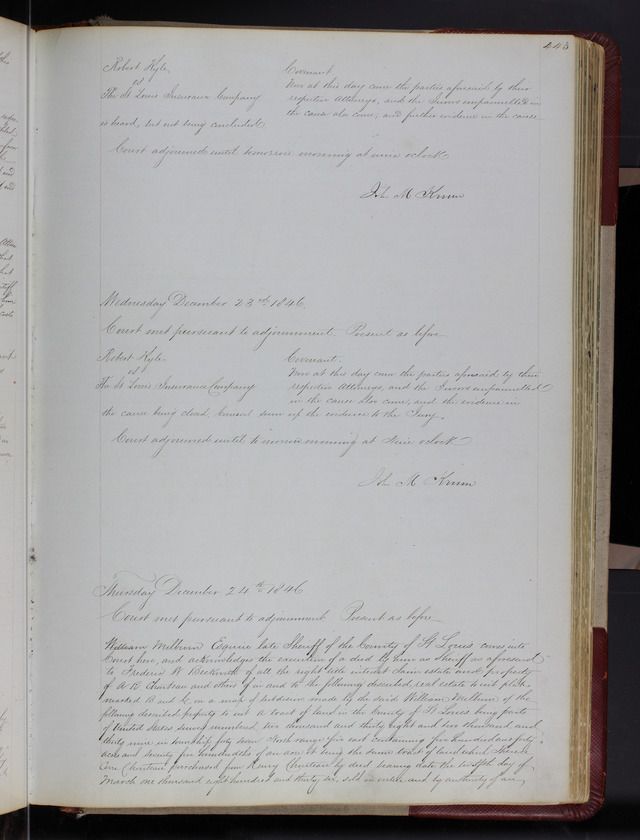 443
Robert Kyle
vs
The St Louis Insurance Company
Covenant
Now at this day come the parties aforesaid by their
respective Attorneys, and the Jurors empannelled in
the cause also come, and further evidence in the cause
is heard, but not being concluded.
Court adjourned until tomorrow morning at nine oclock
John M Krum
Wednesday December 23rd 1846.
Court met pursuant to adjournment Present as before
Robert Kyle
vs
The St Louis Insurance Company
Covenant.
Now at this day come the parties aforesaid by their
respective Attorneys, and the Jurors empannelled
in the cause also come, and the evidence in
the cause being closed, Counsel sum up the evidence to the Jury.
Court adjourned until tomorrow morning at Nine oclock
John M Krum
Thursday December 24th 1846
Court met pursuant to adjournment Present as before
William Milburn Esquire late Sheriff of the County of St Louis comes into
Court here, and acknowledges the execution of a deed by him as Sheriff as aforesaid
to Frederic W Beckwith of all the right title interest claim estate and property
of A R Chouteau and others of in and to the following described real estate to wit plats
marked B and C, on a map of subdivision made by the said William Milburn of the
following described property to wit A tract of land in the County of St Louis being parts
of United States survey numbered, two thousand and thirty eight and two thousand and
thirty nine in township forty seven North range five east containing five hundred and forty
acres and seventy five hundredths of an acre it being the same tract of land which
Cerre Chouteau purchased from Henry Chouteau by deed bearing date the twelfth day of
March one thousand eight hundred and thirty six, sold in order and by authority of an